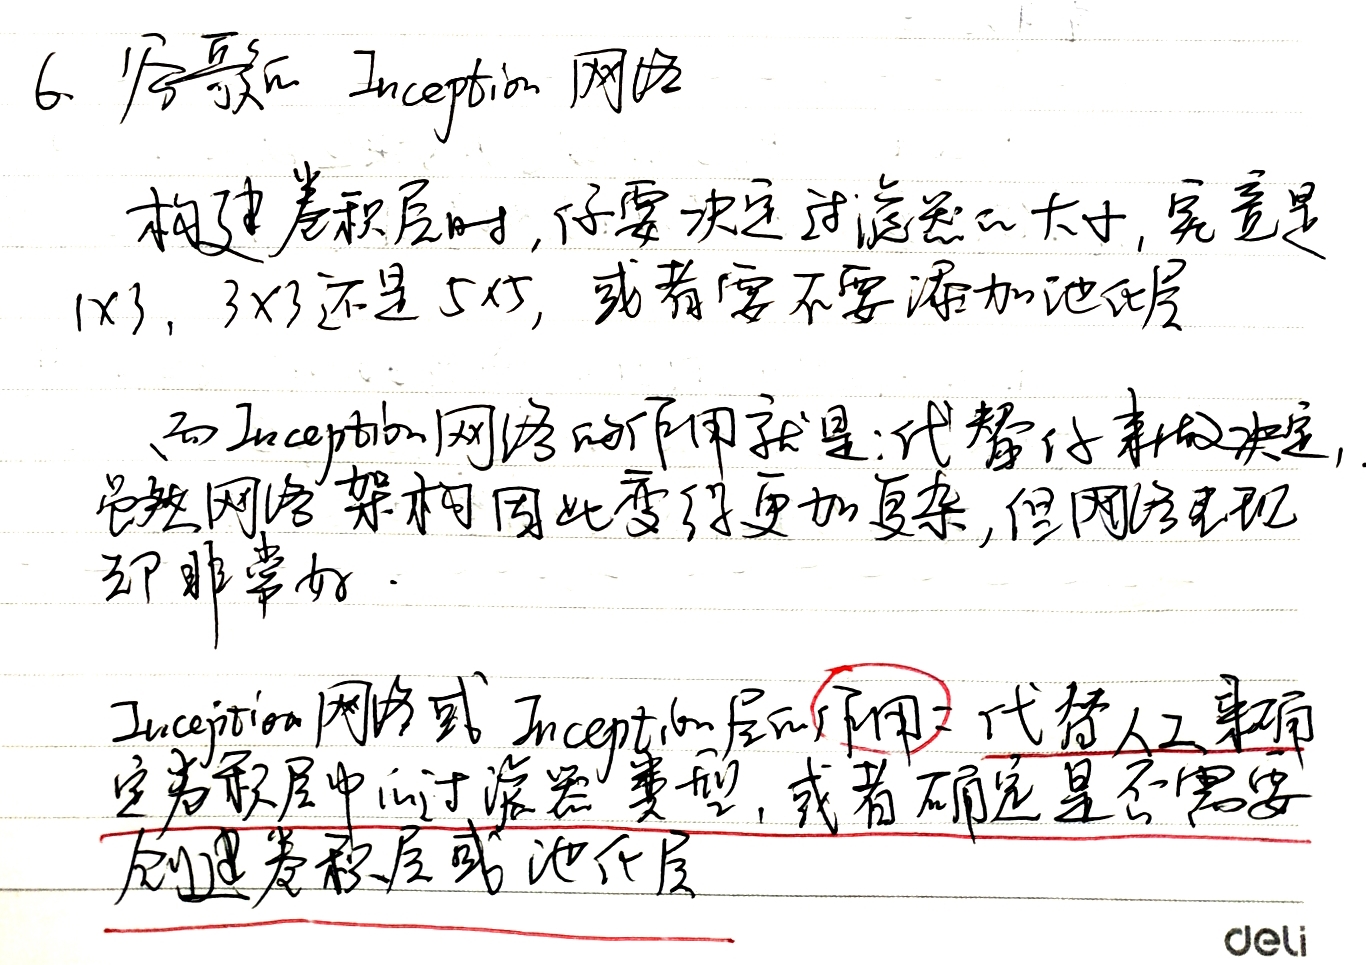 6. 谷歌的 Inception 网络
构建卷积层时,你要决定过滤器的大小,究竟是
1×3, 3×3还是5×5, 或者要不要添加池化层
而Inception网络的作用就是:代替你来做决定,
虽然网络架构因此变得更加复杂,但网络表现
却非常好.
Inception网络或Inception层的作用: 代替人工来确
定卷积层中的过滤器类型,或者确定是否需要
创建卷积层或池化层
deli